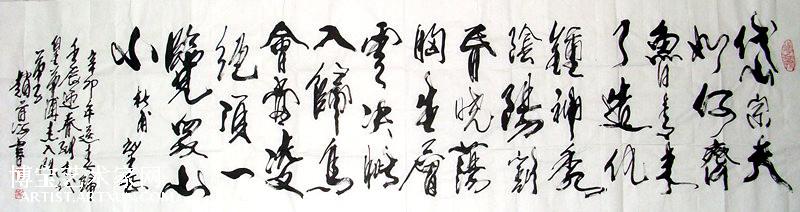 岱宗夫
如何齊
魯青未
了造化
鍾神秀
陰陽割
昏曉蕩
胸生層
雲決眥
入歸鳥
會當凌
絕頂一
覽眾山
小 杜甫 望岳
辛卯年送走
壬辰迎春到
書
博宝艺术家网
ARTIST.ARTXUN.COM